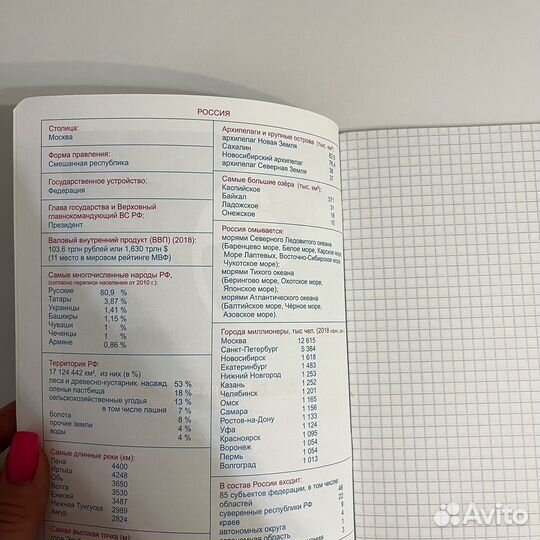 РОССИЯ
Столица:
Москва
Форма правления:
Смешанная республика
Государственное устройство:
Федерация
Глава государства и Верховный
главнокомандующий ВС РФ:
Президент
Валовый внутренний продукт (ВВП) (2018):
103,6 трлн рублей или 1,630 трлн $
(11 место в мировом рейтинге МВФ)
Самые многочисленные народы РФ,
(согласно переписи населения от 2010 г.):
Русские 80,9 %
Татары 3,87 %
Украинцы 1,41 %
Башкиры 1,15 %
Чуваши 1 %
Чеченцы 1 %
Армяне 0,86 %
Территория РФ:
17 124 442 км², из них (в %)
леса и древесно-кустарник. насажд. 53 %
оленьи пастбища 18 %
сельскохозяйственные угодья 13 %
в том числе пашня 7 %
болота 8 %
прочие земли 4 %
воды 4 %
Самые длинные реки (км):
Лена 4400
Иртыш 4248
Обь 3650
Волга 3530
Енисей 3487
Нижняя Тунгуска 2989
Амур 2824
Самая высокая точка (м):
Архипелаги и крупные острова (тыс. км²):
архипелаг Новая Земля 82,6
Сахалин 76,4
Новосибирский архипелаг 38
архипелаг Северная Земля 37
Самые большие озёра (тыс. км²):
Каспийское 371
Байкал 31
Ладожское 18
Онежское 10
Россия омывается:
морями Северного Ледовитого океана
(Баренцево море, Белое море, Карское море,
Море Лаптевых, Восточно-Сибирское море,
Чукотское море);
морями Тихого океана
(Берингово море, Охотское море,
Японское море);
морями Атлантического океана
(Балтийское море, Чёрное море,
Азовское море).
Города миллионеры, тыс. чел. (2018
Москва 12 615
Санкт-Петербург 5 384
Новосибирск 1 618
Екатеринбург 1 483
Нижний Новгород 1 253
Казань 1 252
Челябинск 1 201
Омск 1 165
Самара 1 156
Ростов-на-Дону 1 133
Уфа 1 124
Красноярск 1 095
Воронеж 1 054
Пермь 1 054
Волгоград 1 013
В состав России входит:
85 субъектов федерации, в том числе: 46
областей 22
суверенные республики РФ 9
краев 4
автономных округа 1
автономная область 3
Avito